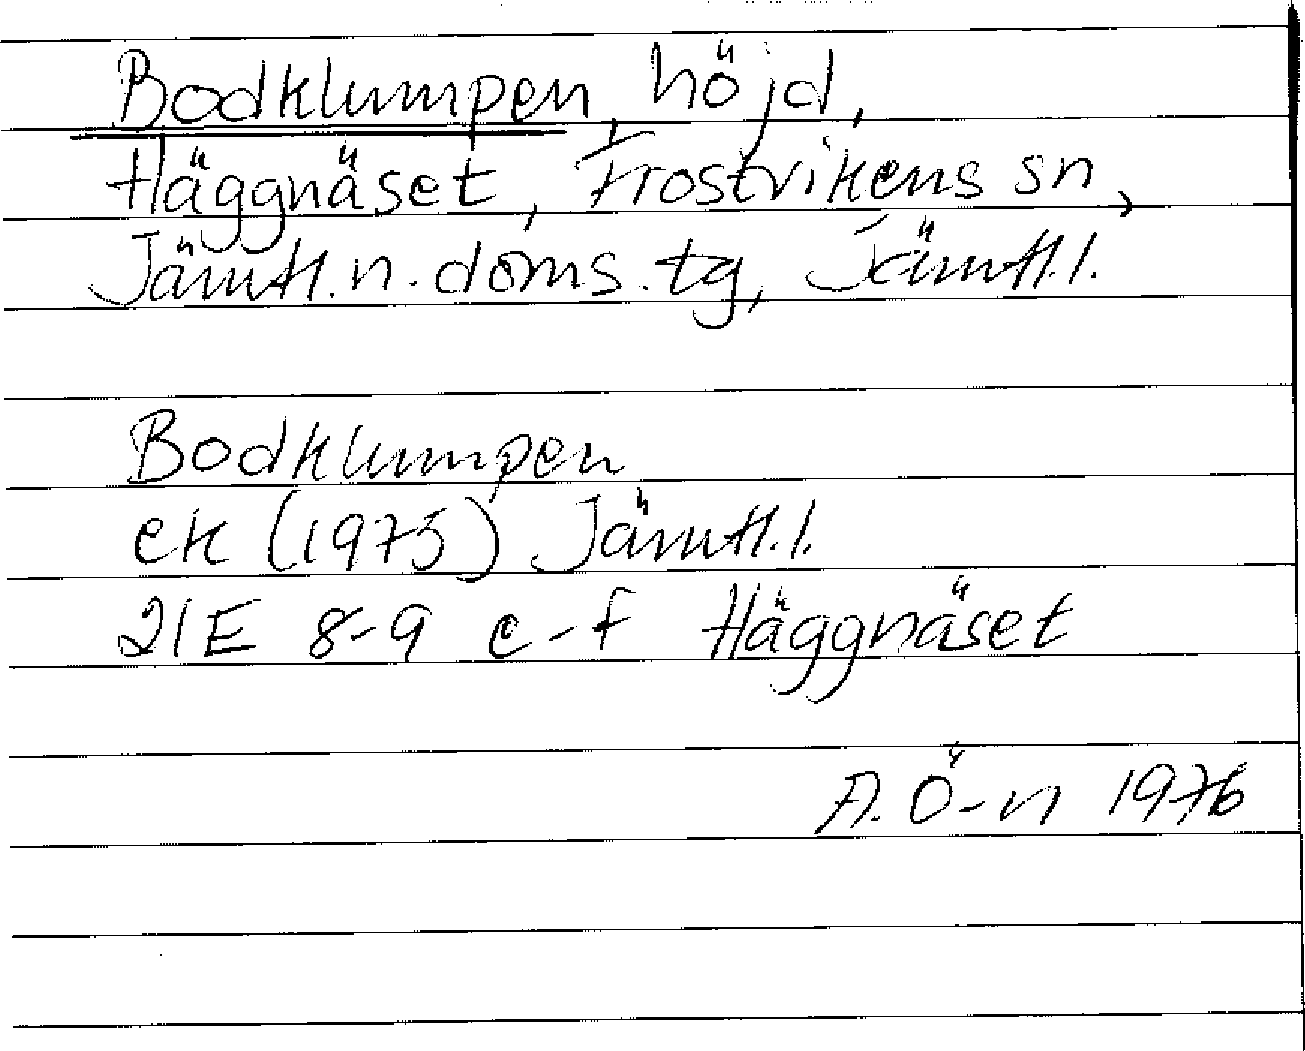 Bodklumpen, höjd,
Häggnäset, Frostvikens sn,
Jämtl. n. doms. tg, Jämtl. l.
Bodklumpen
ek (1975) Jämtl. l.
21E 8-9 e-f Häggnäset
A. Ö-n 1976